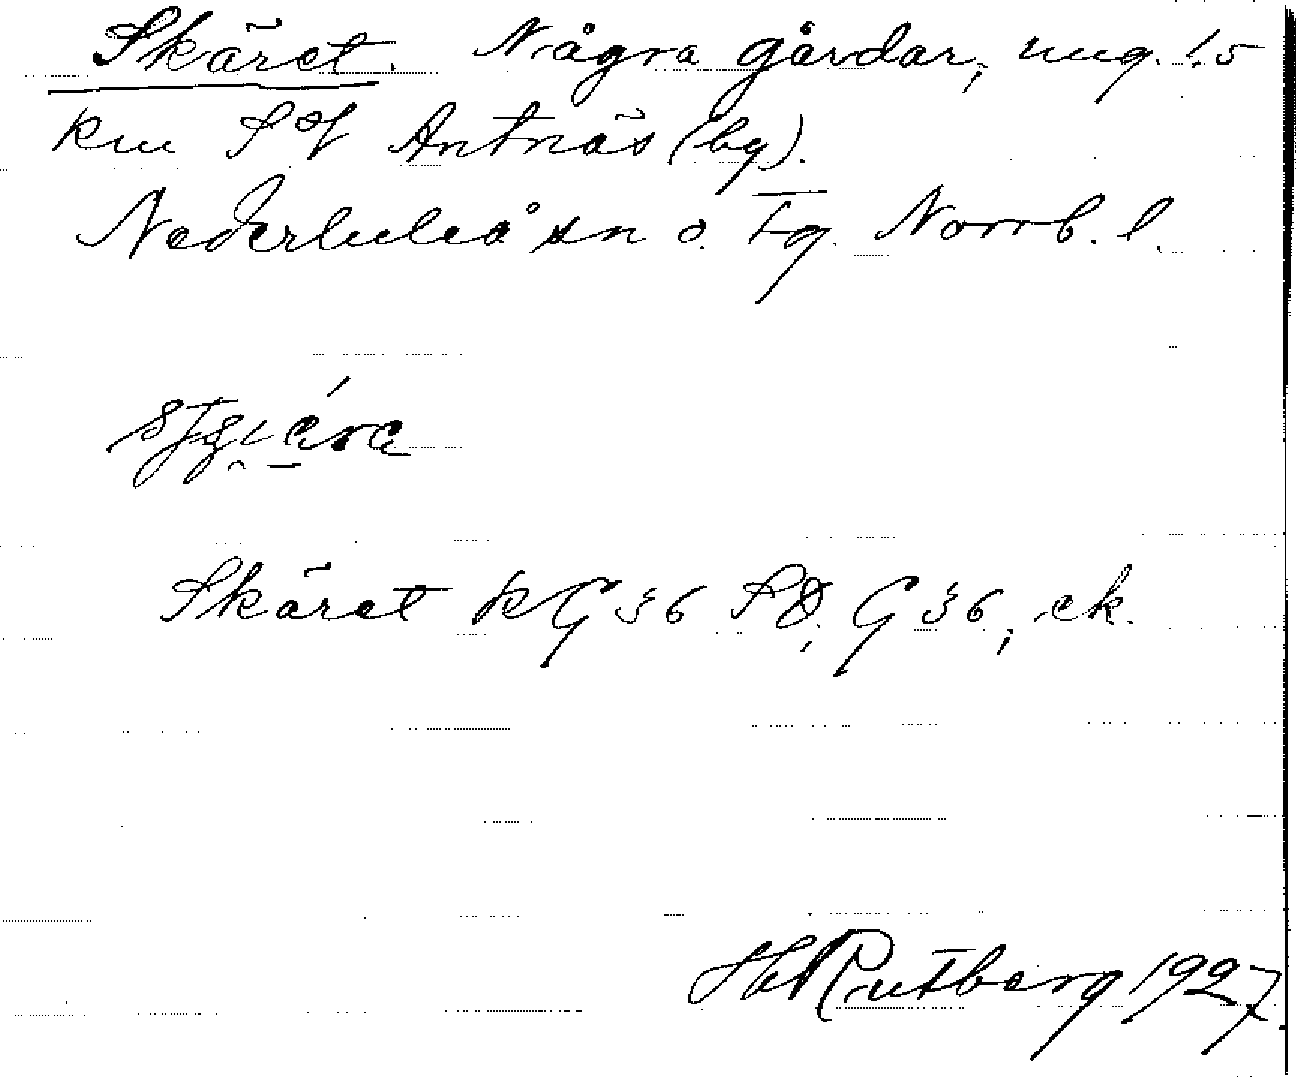 Skäret. Några gårdar, ung. 1.5
km S of Antnäs (by).
Nederluleå sn o. tg. Norrb. l.
Skäret KG 36 SO, G 36, ek.
Hj Rutberg 1927.